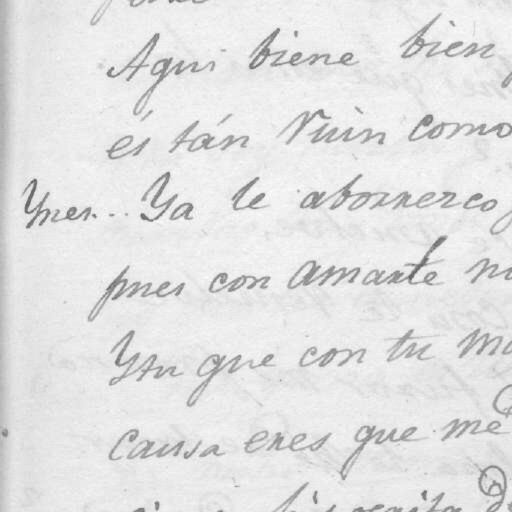 Aqui biene bien
és tán Ruin como
Ynes... Ya le aborrerco
pues con amante
Ytu que con tu
causa eres que me